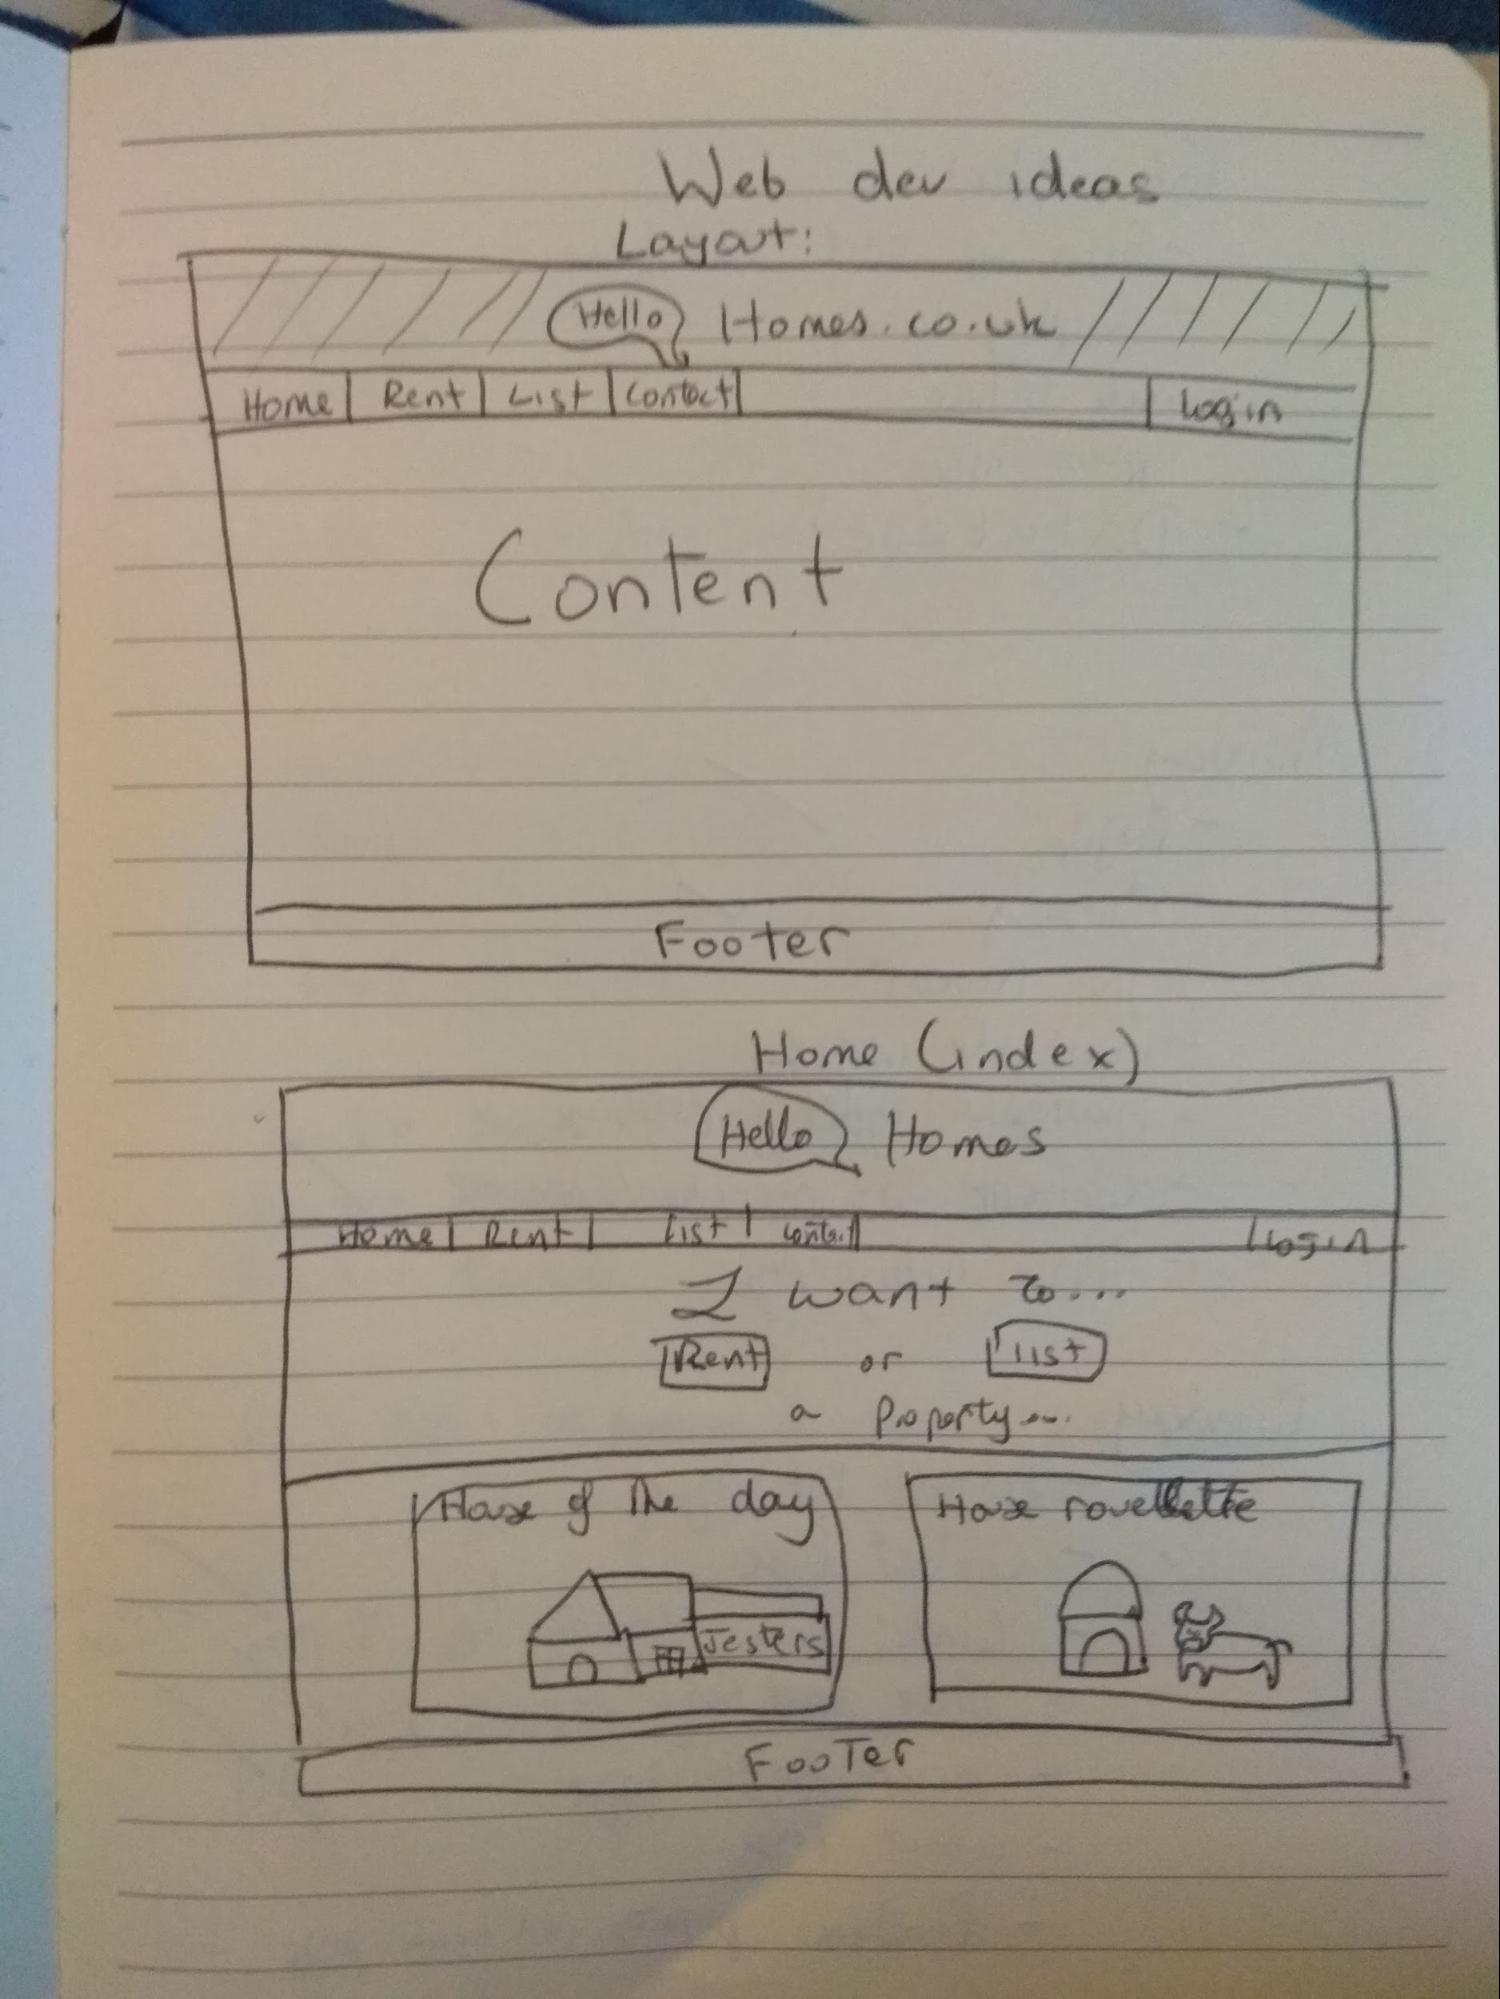 Web dev ideas
Layout:
Hello Homes.co.uk
Home Rent List Contact Login
Content
Footer
Home (index)
Hello Homes
Home Rent List Contact Login
I want to...
Rent or list
a Property...
House of the day House roulette
Jesters
Footer